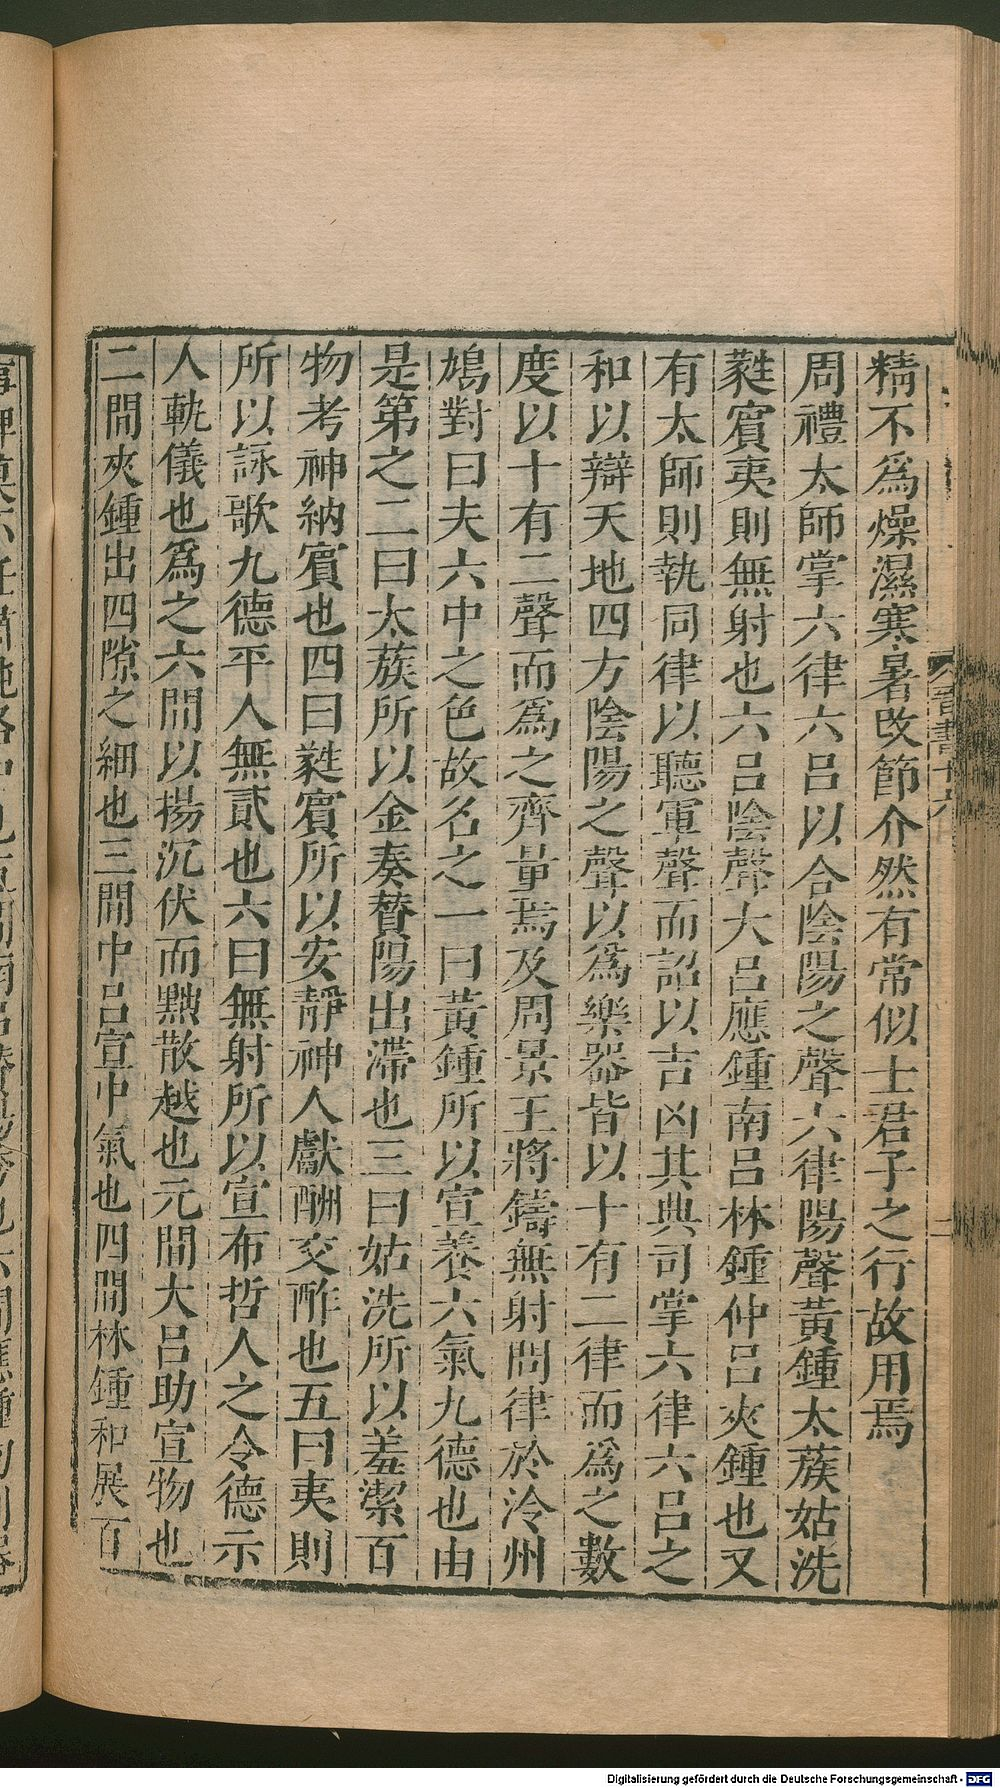 精不爲燥濕寒暑改節介然有常似士君子之行故用焉
周禮太師掌六律六呂以合陰陽之聲六律陽聲黃鍾太蔟姑洗
蕤賓夷則無射也六呂陰聲大呂應鍾南呂林鍾仲呂夾鍾也又
有太師則執同律以聽軍聲而詔以吉凶其典司掌六律六呂之
和以辯天地四方陰陽之聲以爲樂器皆以十有二律而爲之數
度以十有二聲而爲之齊量焉及周景王將鑄無射問律於泠州
鳩對曰夫六中之色故名之一曰黃鍾所以宣養六氣九德也由
是第之二曰太蔟所以金奏贊陽出滯也三曰姑洗所以羞潔百
物考神納賓也四曰蕤賓所以安靜神人獻酬交酢也五曰夷則
所以詠歌九德平人無貳也六曰無射所以宣布哲人之令德示
人軌儀也爲之六間以揚沉伏而黜散越也元間大呂助宣物也
二間夾鍾出四隙之細也三間中呂宣中氣也四間林鍾和展百
晉書十六
二
Digitalisierung gefördert durch die Deutsche Forschungsgemeinschaft - DFG